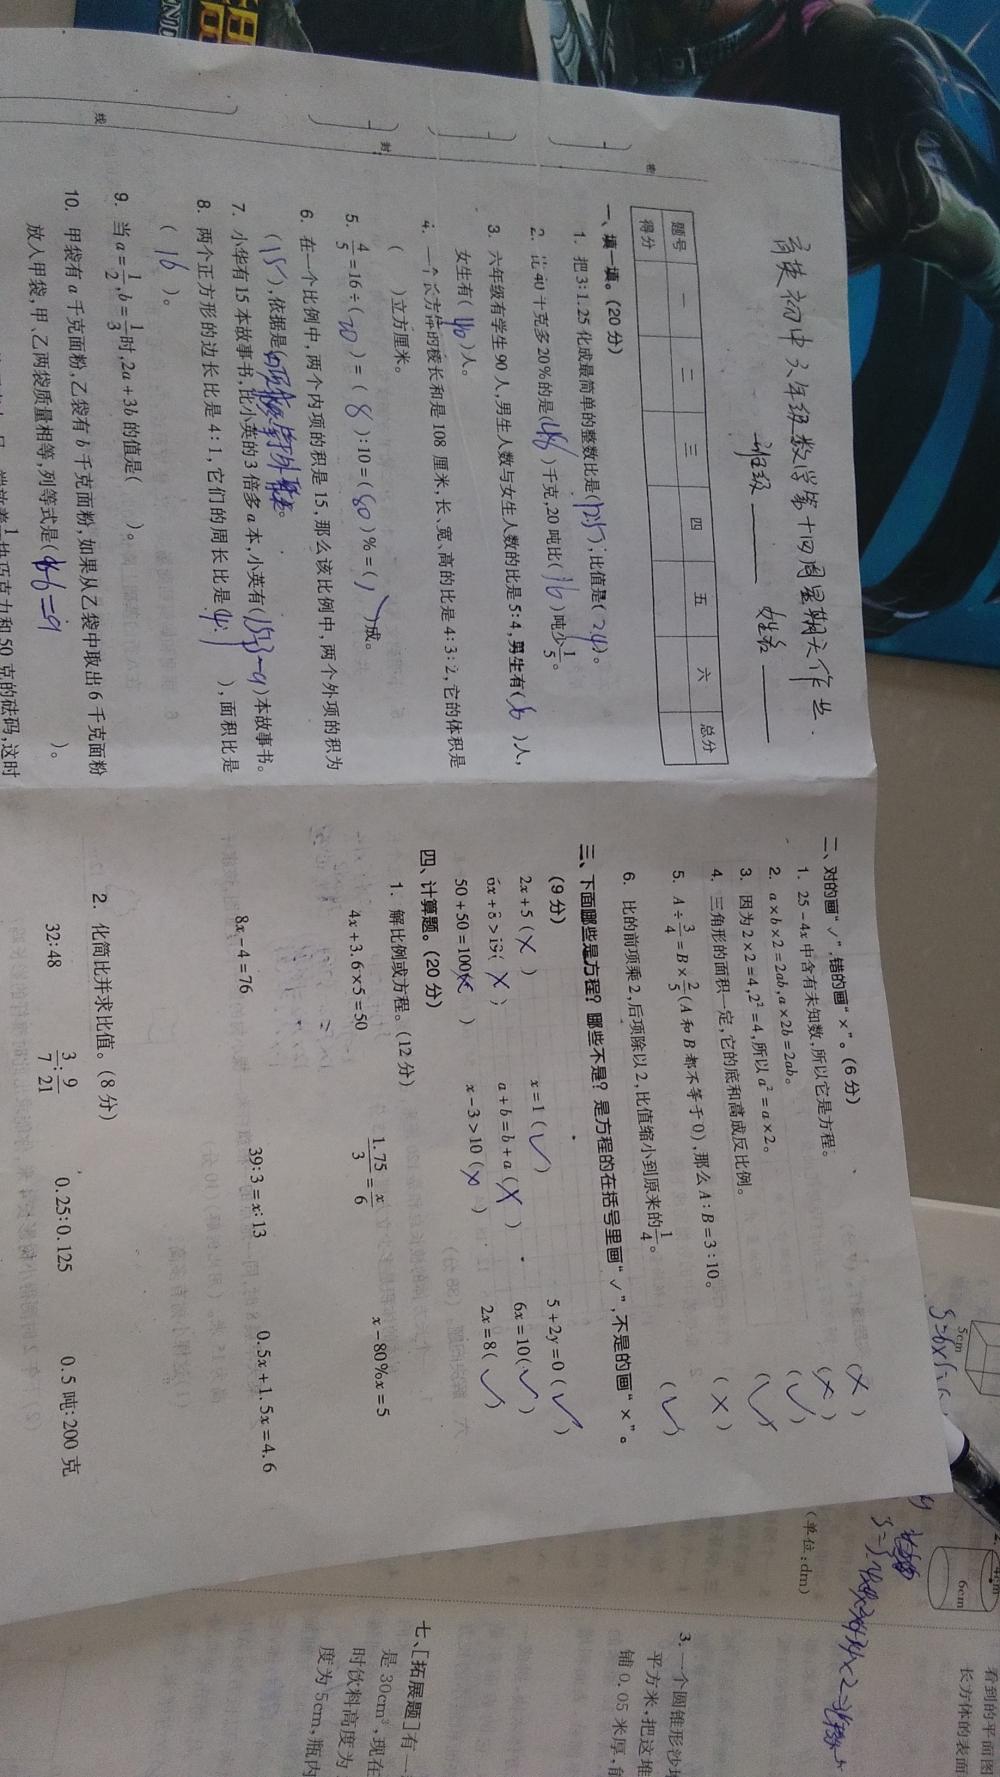 育英初中六年级数学第十四周星期六作业.
班级______ 姓名______
题号 一 二 三 四 五 六 总分
得分
密
封
线
一、填一填。(20分)
1. 把3:1.25化成最简单的整数比是(12:5),比值是(2.4)。
2. 比40千克多20%的是(48)千克,20吨比(16)吨少1/5。
3. 六年级有学生90人,男生人数与女生人数的比是5:4,男生有( )人,
女生有(40)人。
4. 一个长方体的棱长和是108厘米,长、宽、高的比是4:3:2,它的体积是
( )立方厘米。
5. 4/5=16÷(20)=(8):10=(80)%=( )成。
6. 在一个比例中,两个内项的积是15,那么该比例中,两个外项的积为
(15),依据是( )。
7. 小华有15本故事书,比小英的3倍多a本,小英有( )本故事书。
8. 两个正方形的边长比是4:1,它们的周长比是(4:1),面积比是
(16)。
9. 当a=1/2,b=1/3时,2a+3b的值是( )。
10. 甲袋有a千克面粉,乙袋有b千克面粉,如果从乙袋中取出6千克面粉
放入甲袋,甲、乙两袋质量相等,列等式是( )。
块巧克力和50克的砝码,这时
二、对的画“✓”,错的画“×”。(6分)
1. 25-4x中含有未知数,所以它是方程。 (×)
2. a×b×2=2ab,a×2b=2ab。 (×)
3. 因为2×2=4,2²=4,所以a²=a×2。 (✓)
4. 三角形的面积一定,它的底和高成反比例。 (✓)
5. A÷3/4=B×2/5(A和B都不等于0),那么A:B=3:10。 (×)
6. 比的前项乘2,后项除以2,比值缩小到原来的1/4。 (✓)
三、下面哪些是方程?哪些不是?是方程的在括号里画“✓”,不是的画“×”。
(9分)
2x+5(×) x=1(✓) 5+2y=0(✓)
6x+8>19(×) a+b=b+a(×) 6x=10(✓)
50+50=100(×) x-3>10(×) 2x=8(✓)
四、计算题。(20分)
1. 解比例或方程。(12分)
4x+3.6×5=50 1.75/3=x/6 x-80%x=5
8x-4=76 39:3=x:13 0.5x+1.5x=4.6
2. 化简比并求比值。(8分)
32:48 3/7:9/21 0.25:0.125 0.5吨:200克
5cm
4cm
6cm
(单位:dm)
看到的平面图
长方体的表面
3. 一个圆锥形沙堆
平方米,把这堆
铺0.05米厚,能
七、[拓展题]有一
是30cm³,现在
时饮料高度为
度为5cm,瓶内